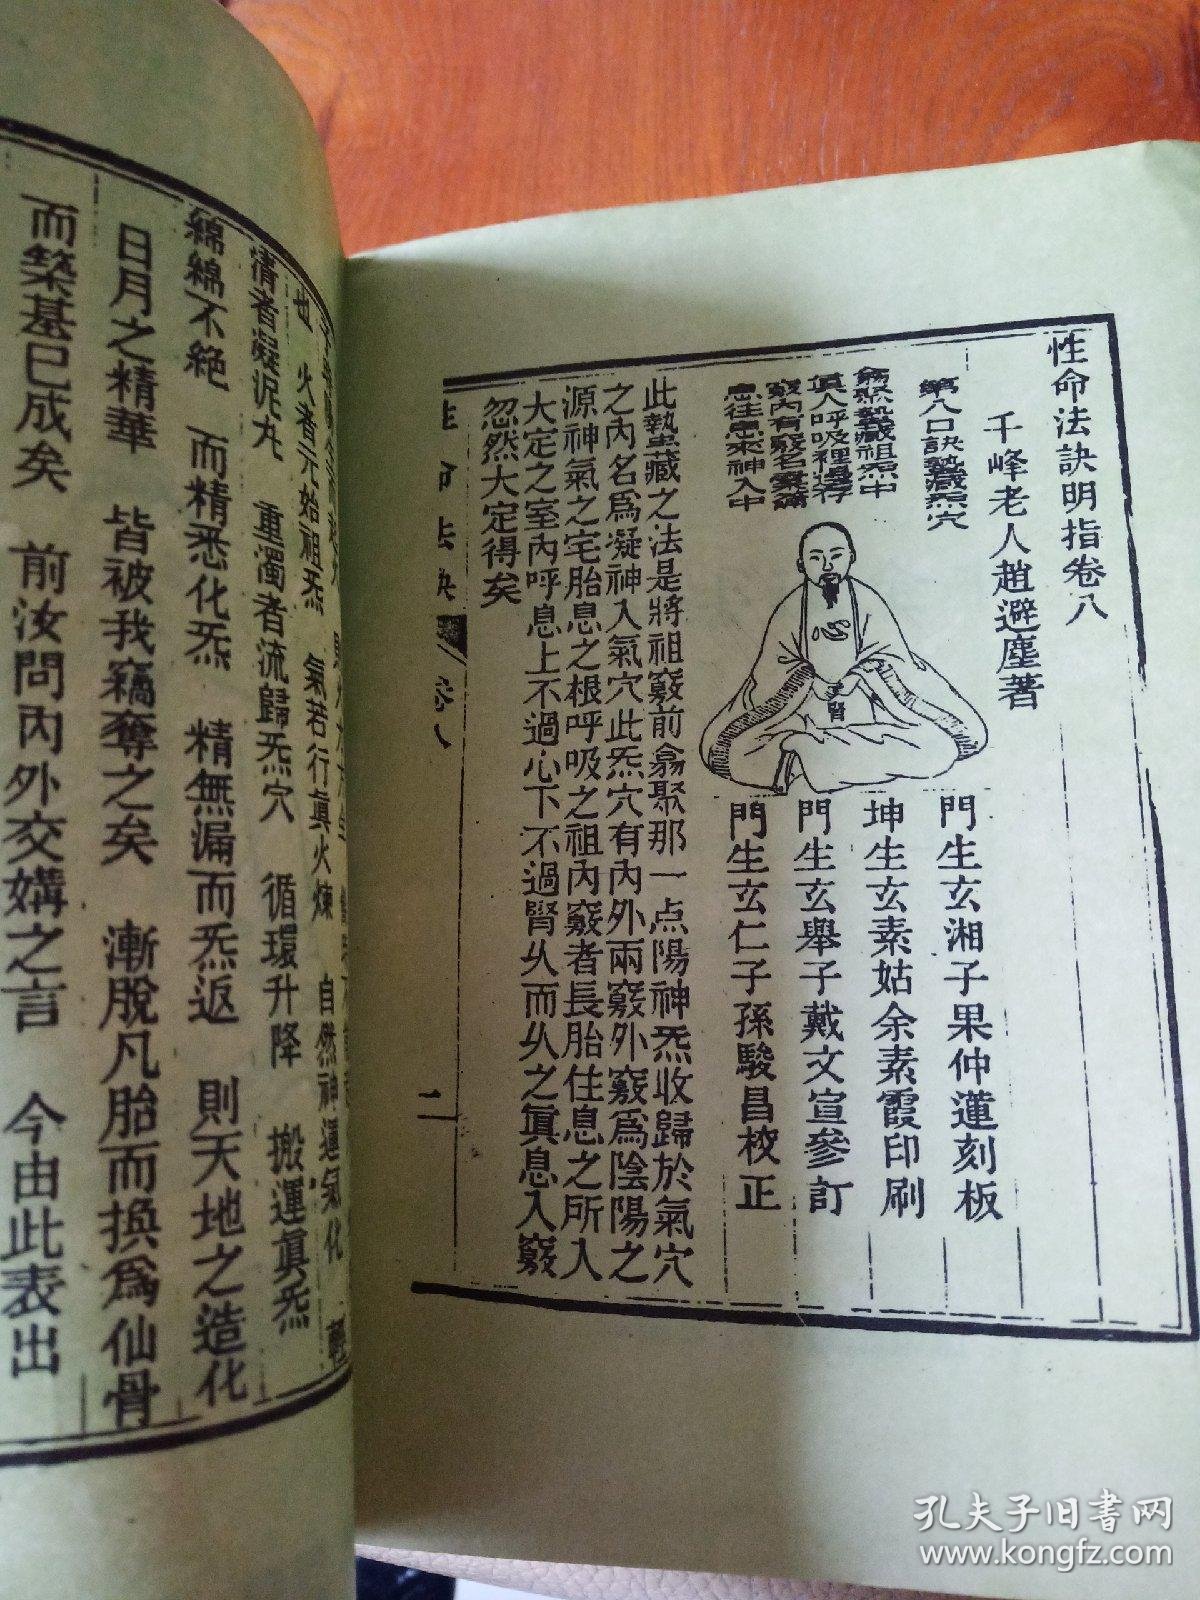 性命法訣明指卷八
千峰老人趙避塵著
第八口訣蟄藏炁穴
翕聚蟄藏祖炁中
眞人呼吸裡邊存
竅內有竅名橐籥
息往息來神入中
心
腎
門生玄湘子果仲蓮刻板
坤生玄素姑余素霞印刷
門生玄舉子戴文宣參訂
門生玄仁子孫駿昌校正
此蟄藏之法是將祖竅前翕聚那一点陽神炁收歸於氣穴
之內名爲凝神入氣穴此炁穴有內外兩竅外竅爲陰陽之
源神氣之宅胎息之根呼吸之祖內竅者長胎住息之所入
大定之室內呼息上不過心下不過腎乆而乆之眞息入竅
忽然大定得矣
性命法訣 卷八
二
也 火者元始祖炁 氣若行眞火煉 自然神運氣化 輕
清者凝泥丸 重濁者流歸炁穴 循環升降 搬運眞炁
綿綿不絶 而精悉化炁 精無漏而炁返 則天地之造化
日月之精華 皆被我竊奪之矣 漸脫凡胎而換爲仙骨
而築基已成矣 前汝問內外交媾之言 今由此表出
孔夫子旧書网
www.kongfz.com